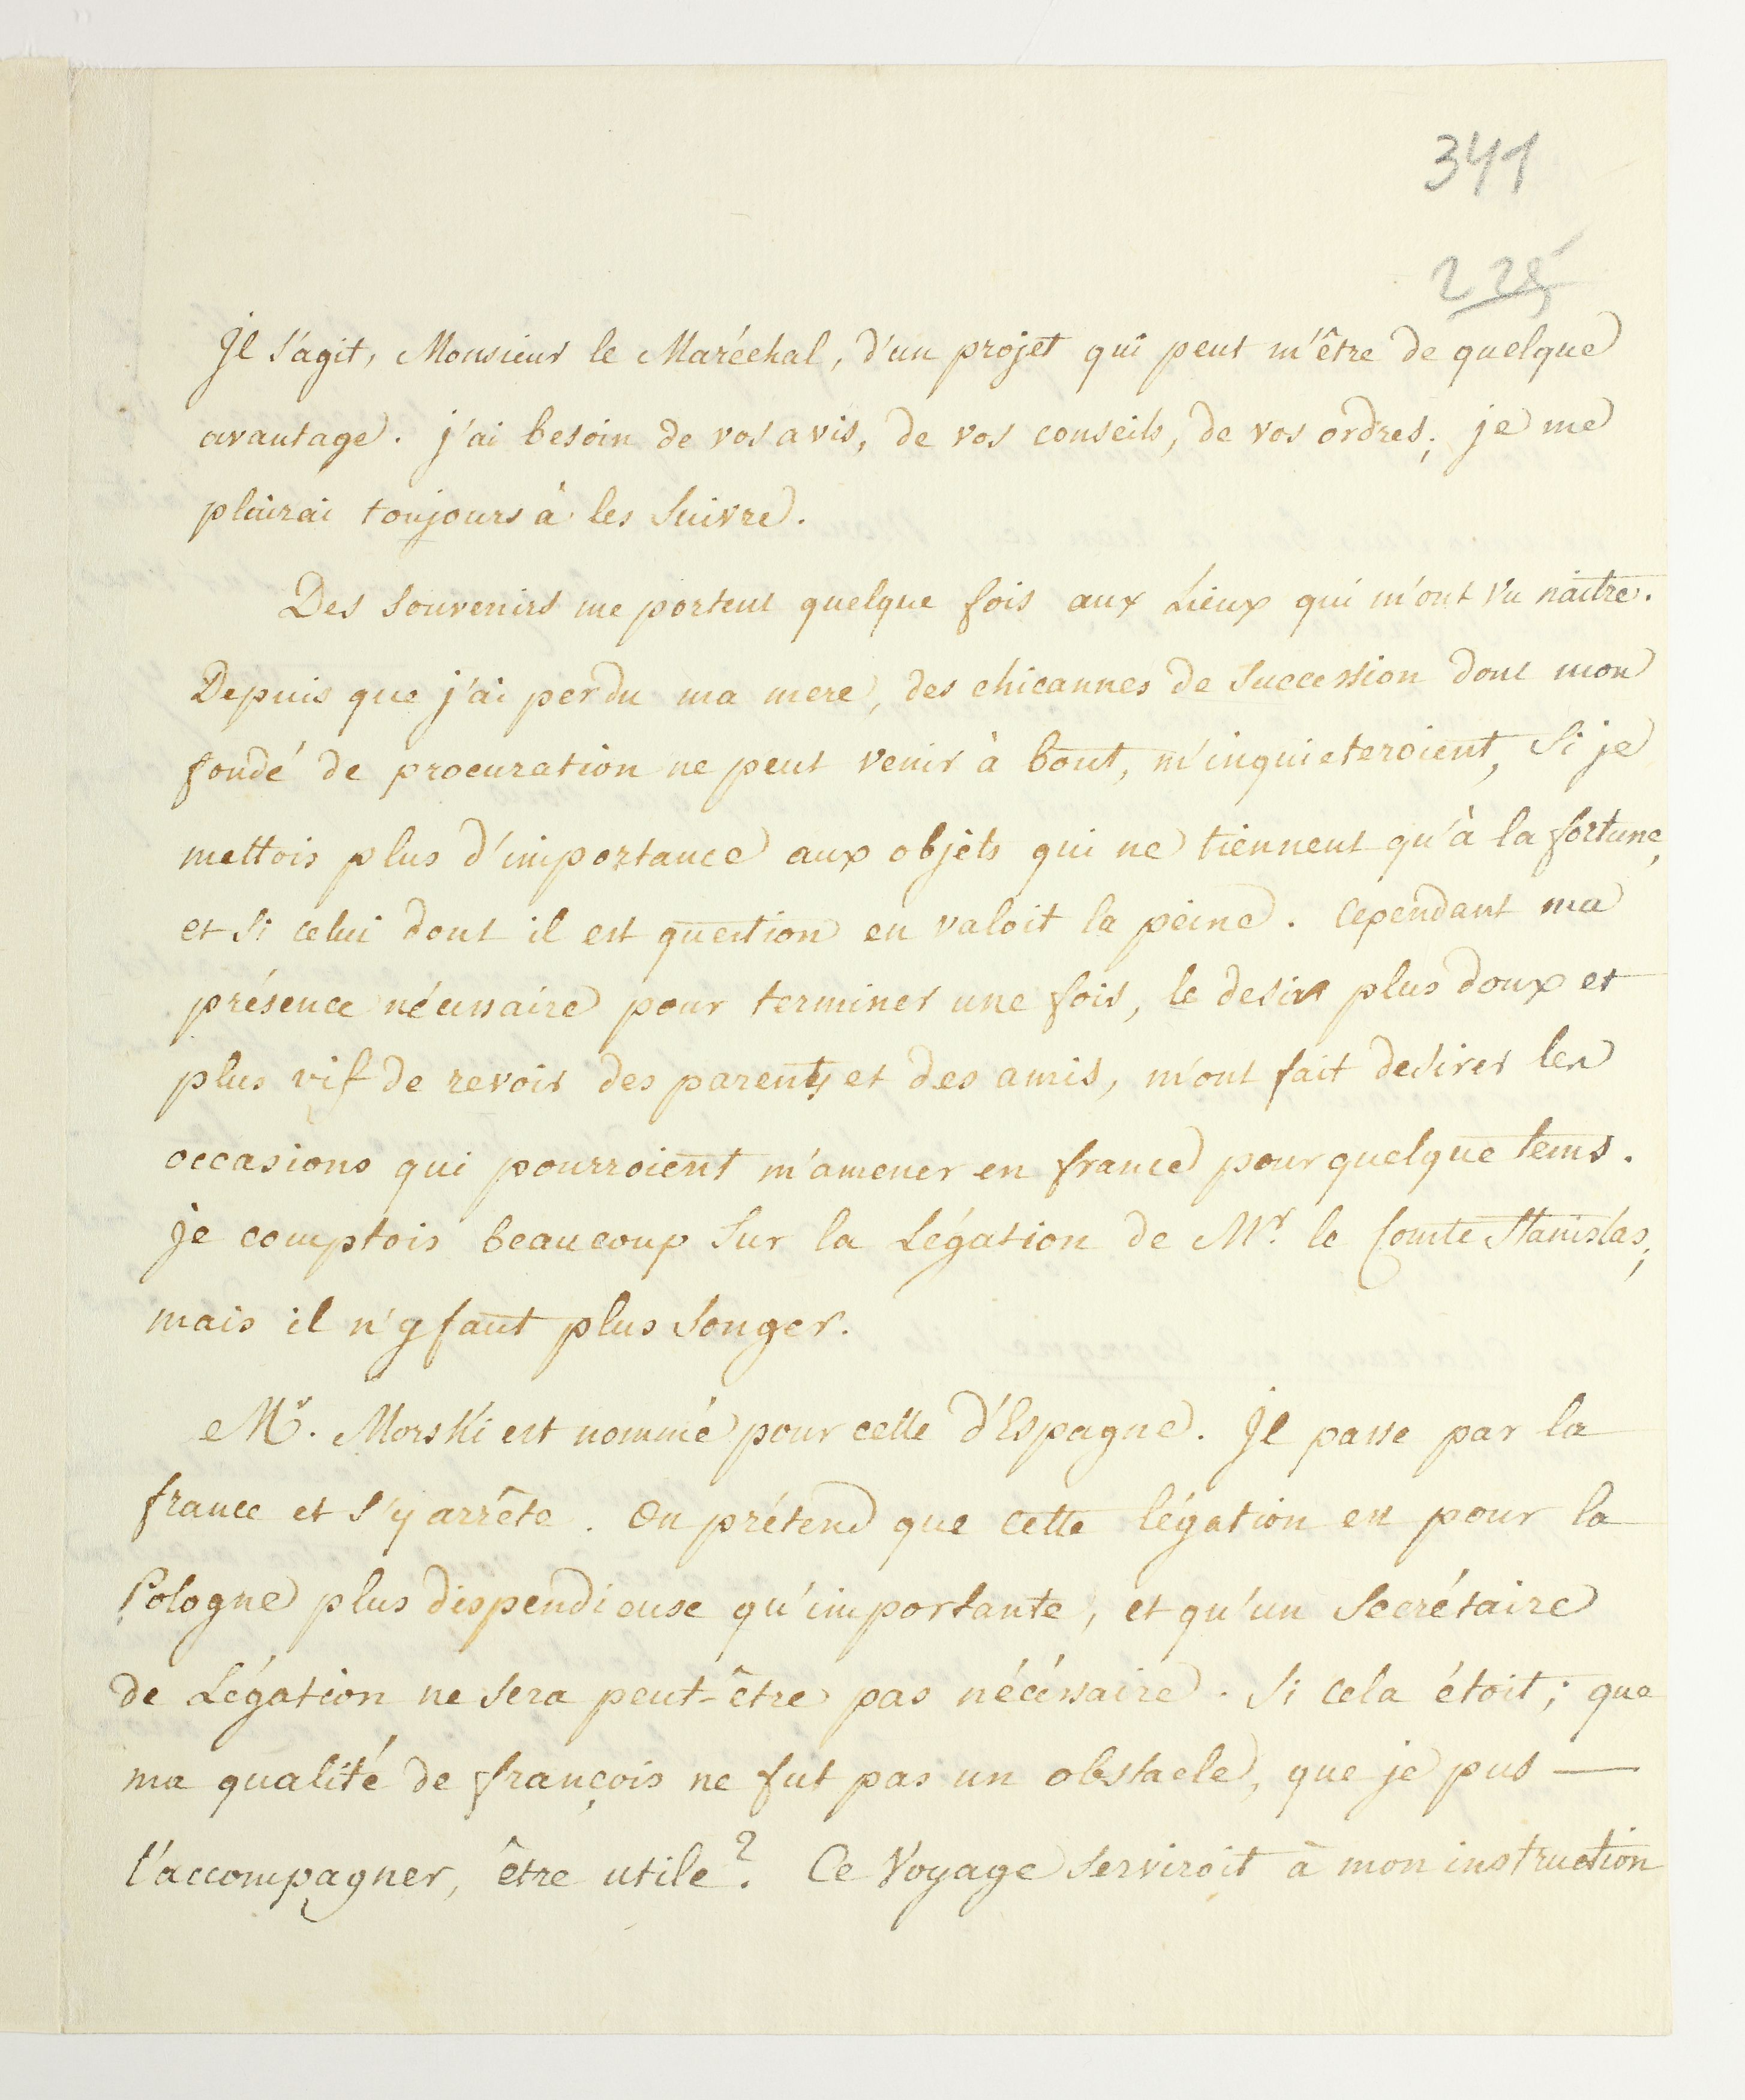 341
225
Il s'agit, Monsieur le Maréchal, d'un projet qui peut m'être de quelque
avantage. j'ai besoin de vos avis, de vos conseils, de vos ordres; je me
plairai toujours à les suivre.
Des souvenirs me portent quelque fois aux Lieux qui m'ont vu naitre.
Depuis que j'ai perdu ma mere, des chicannes de succession dont mon
fondé de procuration ne peut venir à bout, m'inquieteroient, si je
mettois plus d'importance aux objets qui ne tiennent qu'à la fortune,
et si celui dont il est question en valoit la peine. Cependant ma
présence nécessaire pour terminer une fois, le desir plus doux et
plus vif de revoir des parents et des amis, m'ont fait desirer les
occasions qui pourroient m'amener en france pour quelque tems.
je comptois beaucoup sur la Légation de Mr. le Comte Stanislas;
mais il n'y faut plus songer.
Mr. Morski est nommé pour celle d'Espagne. Il passe par la
france et s'y arrête. On prétend que cette légation est pour la
Pologne plus dispendieuse qu'importante, et qu'un Secrétaire
de Légation ne sera peut-être pas nécéssaire. Si cela étoit; que
ma qualité de françois ne fut pas un obstacle, que je pus —
l'accompagner, être utile? Ce Voyage serviroit à mon instruction